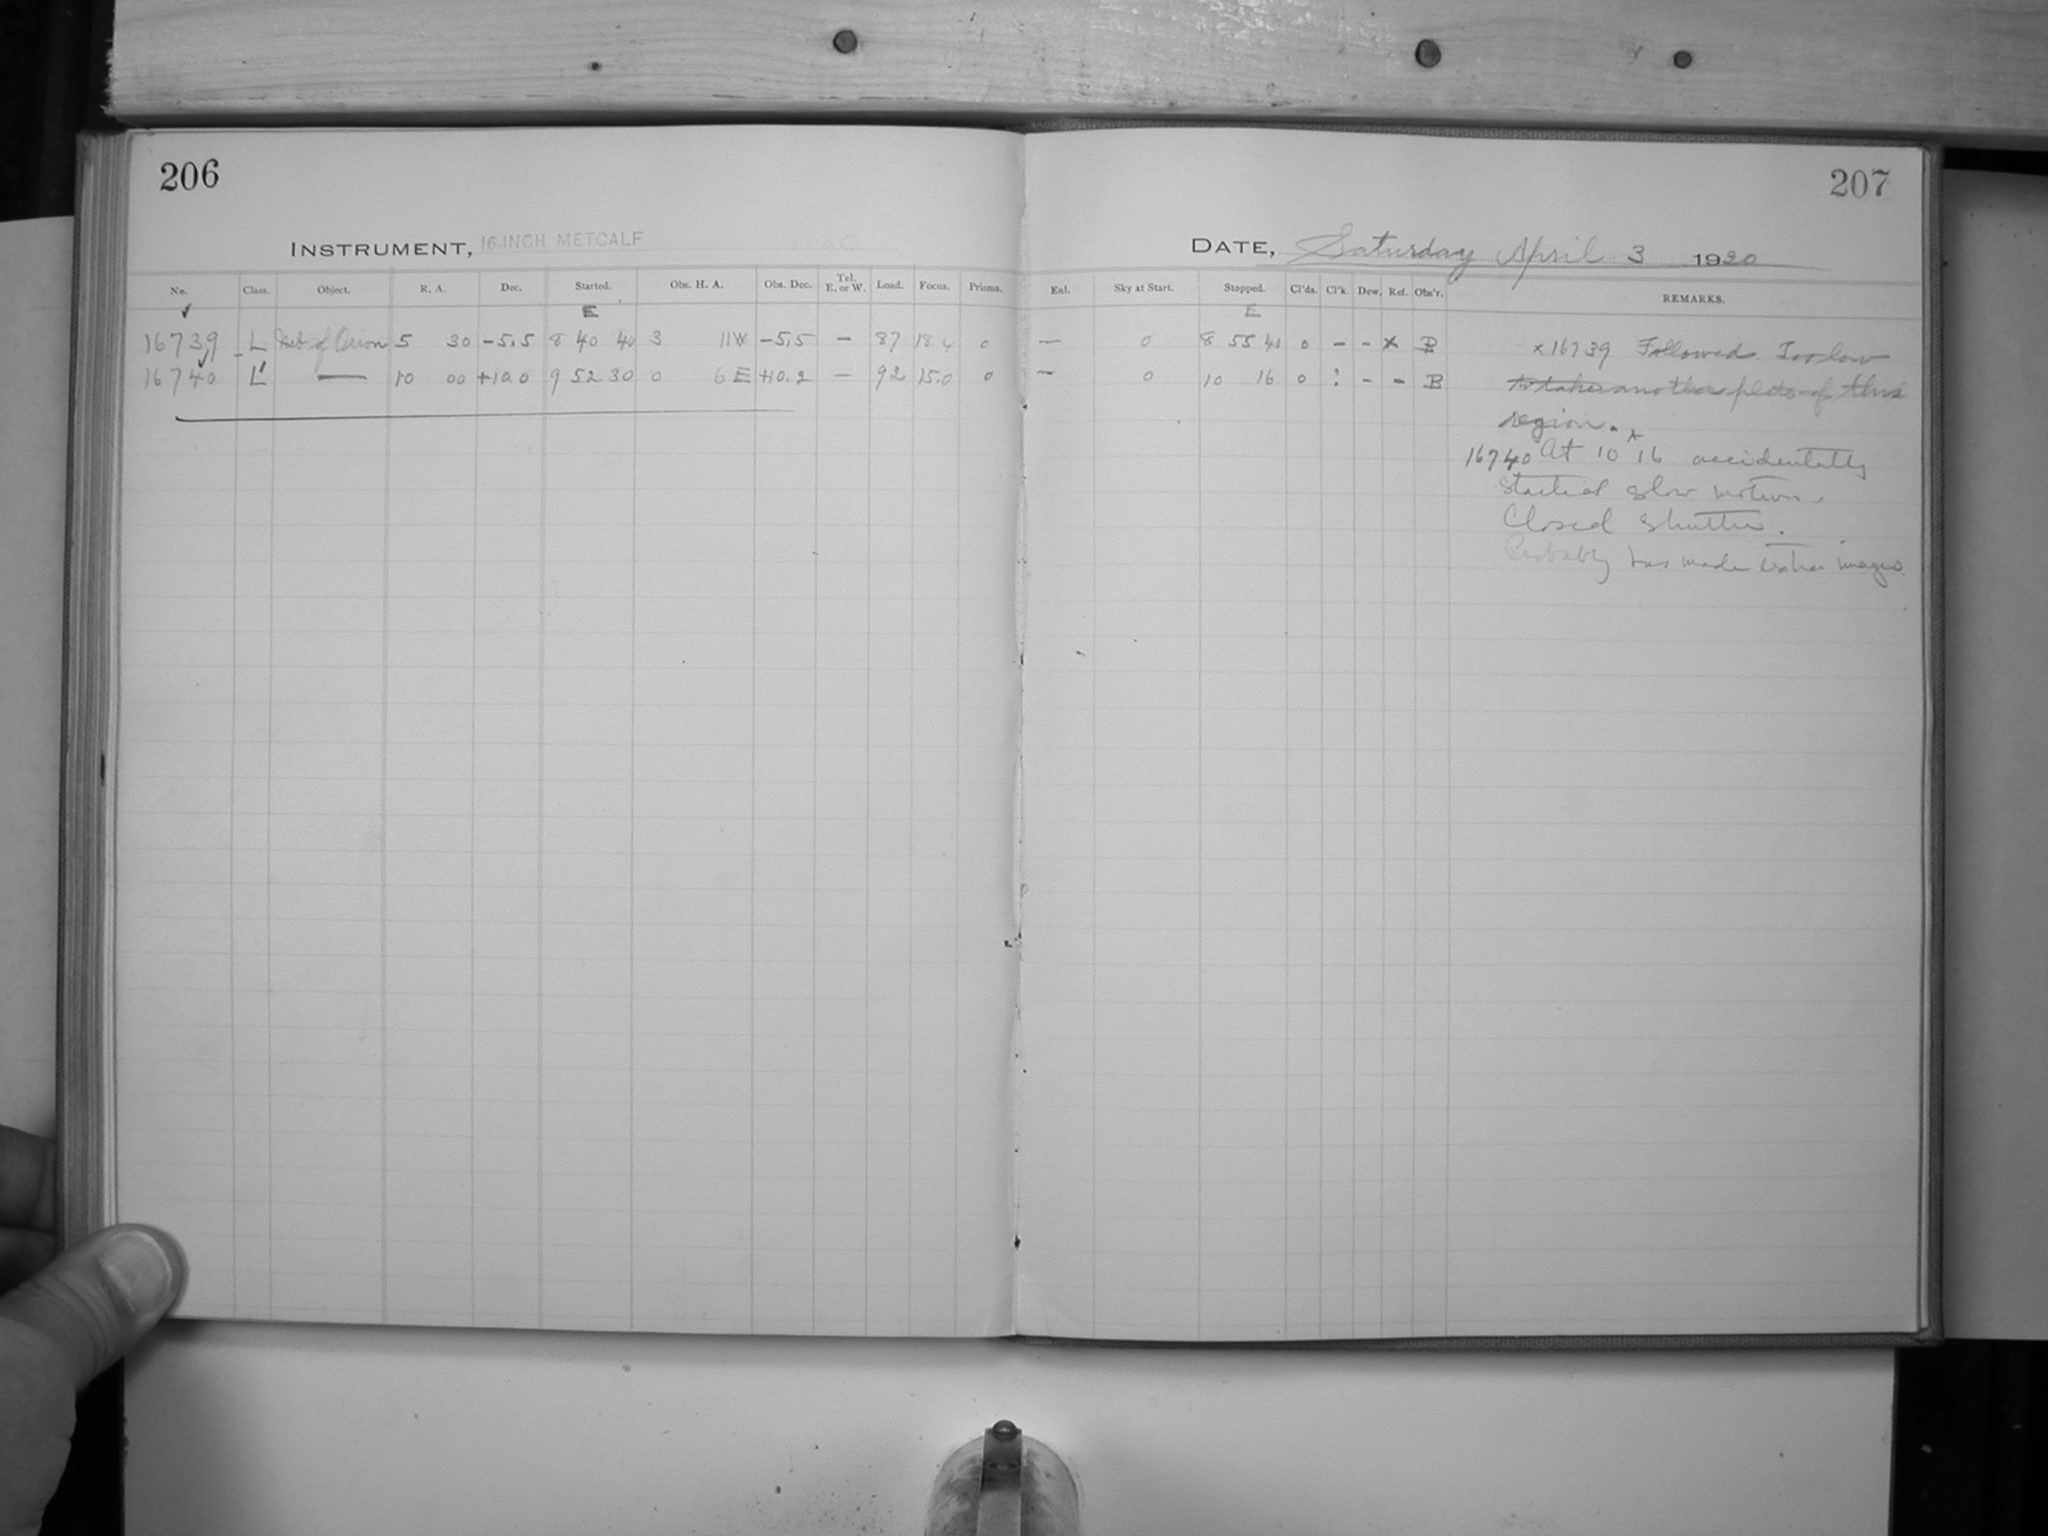 206
207
INSTRUMENT, 16-INCH METCALF
DATE, Saturday April 3 1920
No. Class. Object. R. A. Dec. Started. Obs. H. A. Obs. Dec. Tel. E. or W. Load. Focus. Prisms. Enl. Sky at Start. Stopped. Cl'ds. Cl'k. Dew. Ref. Obs'r. REMARKS.
E E
16739 L Neb. of Orion 5 30 -5.5 8 40 40 3 11W -5.5 - 87 18.4 0 - 0 8 55 41 0 - - x B
16740 L — 10 00 +10.0 9 52 30 0 6 E +10.2 - 92 15.0 0 - 0 10 16 0 : - - B
x 16739 Followed. Too low
to take another photo of this
region.
16740 At 10 16 accidentally
started slow motion.
Closed shutter.
Probably has made extra images.